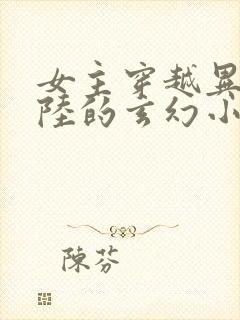 女主穿越異
陸的玄幻小
陳芬